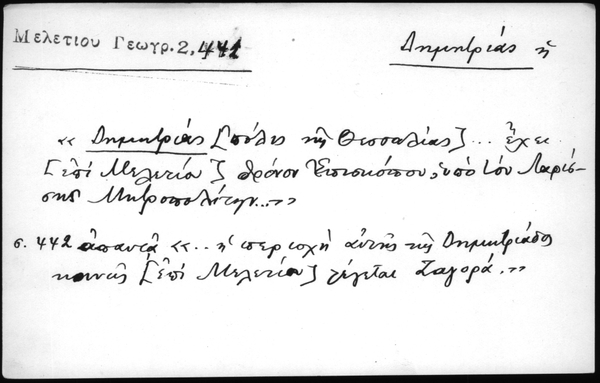 Μελετίου Γεωγρ. 2, 441
Δημητριάς ἡ
«Δημητριάς [πόλις τῆς Θεσσαλίας] ... ἔχει
[ἐπί Μελετίου] θρόνον Ἐπισκόπου, ὑπό τόν Λαρίσ-
σης Μητροπολίτην...»
σ. 442 ἀπαντᾷ «.. ἡ περιοχή αὐτῆς τῆς Δημητριάδος
κοινῶς [ἐπί Μελετίου] λέγεται Ζαγορά.»